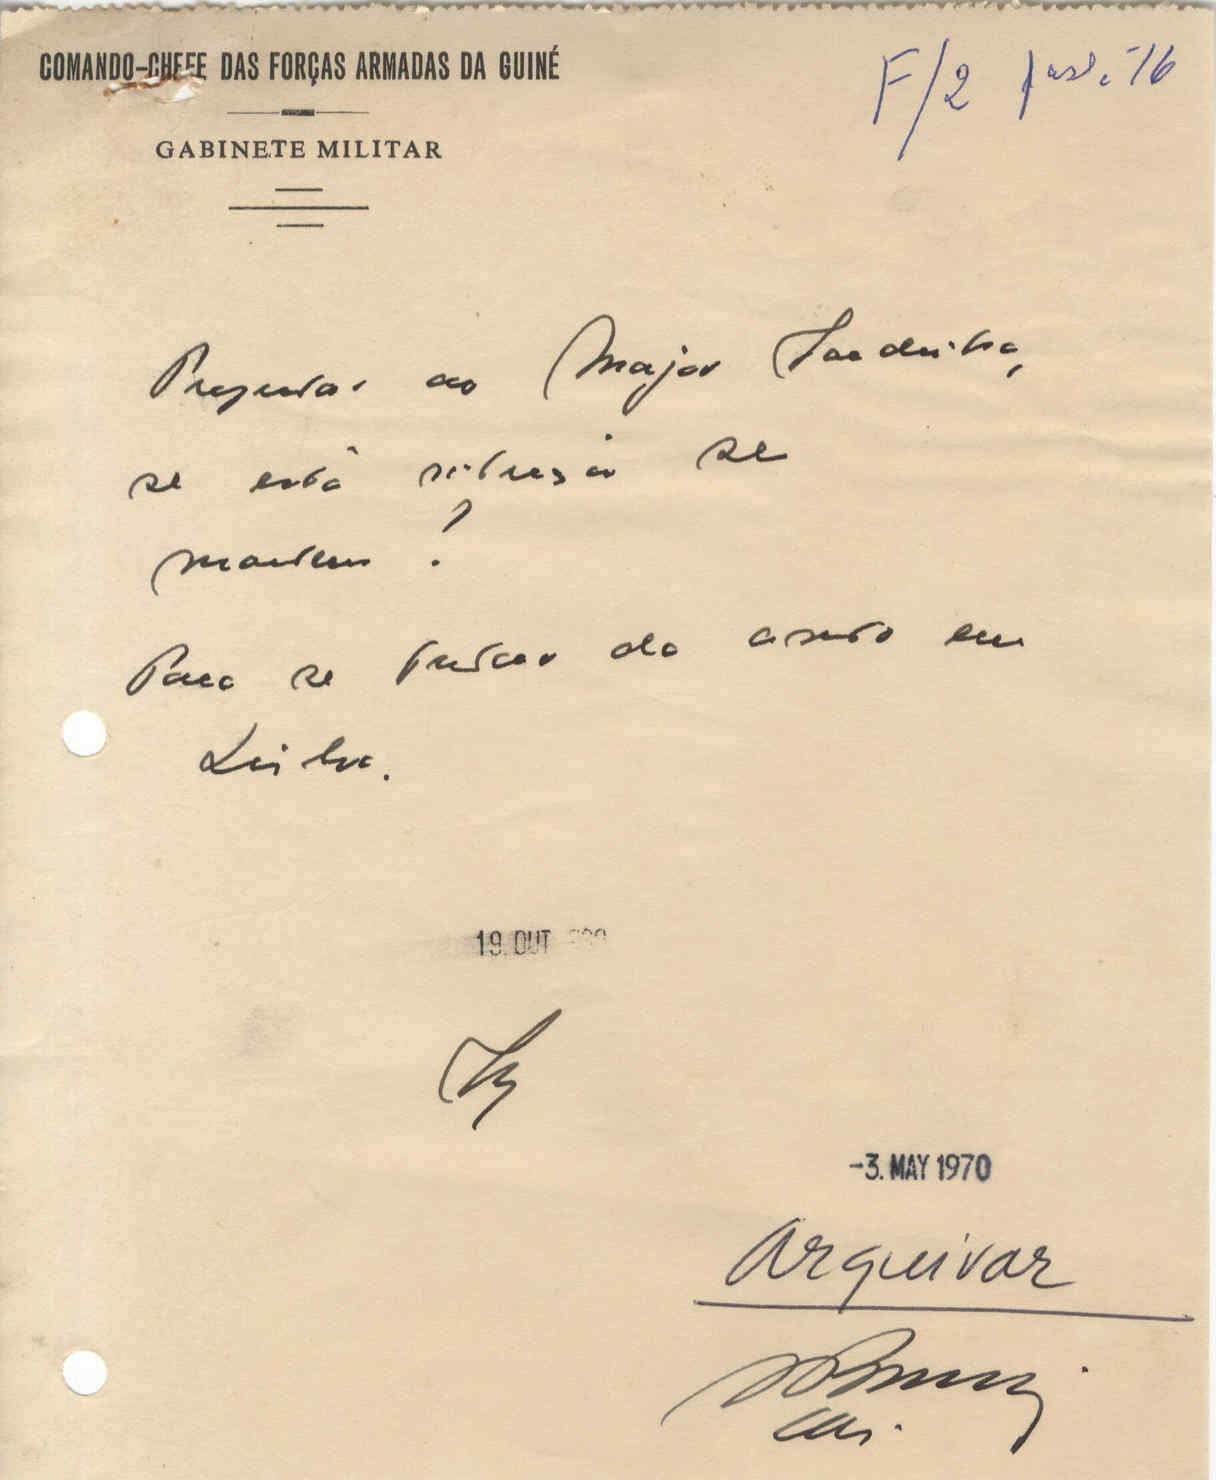 COMANDO-CHEFE DAS FORÇAS ARMADAS DA GUINÉ
F/2
GABINETE MILITAR
Perguntar ao Major
se esta situação se
mantem?
Para se tratar do assunto em
Lisboa.
19. OUT
-3. MAY 1970
Arquivar